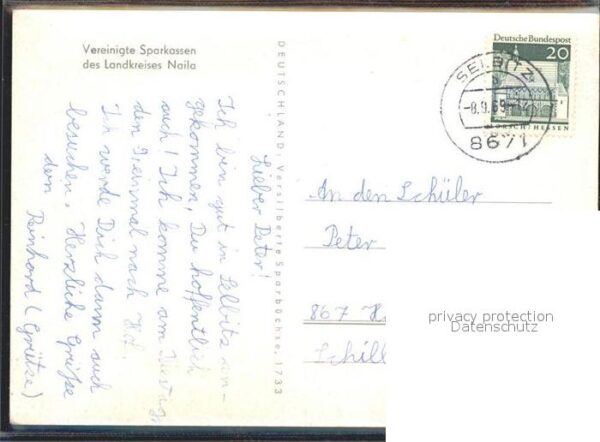 Vereinigte Sparkassen
des Landkreises Naila
Lieber Peter!
Ich bin gut in Selbitz an-
gekommen, Du hoffentlich
auch! Ich komme am
den 9. einmal nach Hof.
Ich werde Dich dann auch
besuchen. Herzliche Grüße
dein
Reinhard (Grütze)
DEUTSCHLAND: Versilberte Sparbüchse, 1733
Deutsche Bundespost
20
LORSCH/HESSEN
SELBITZ
b
-8.9.69
8671
An den Schüler
Peter
867 H
Schill
privacy protection
Datenschutz